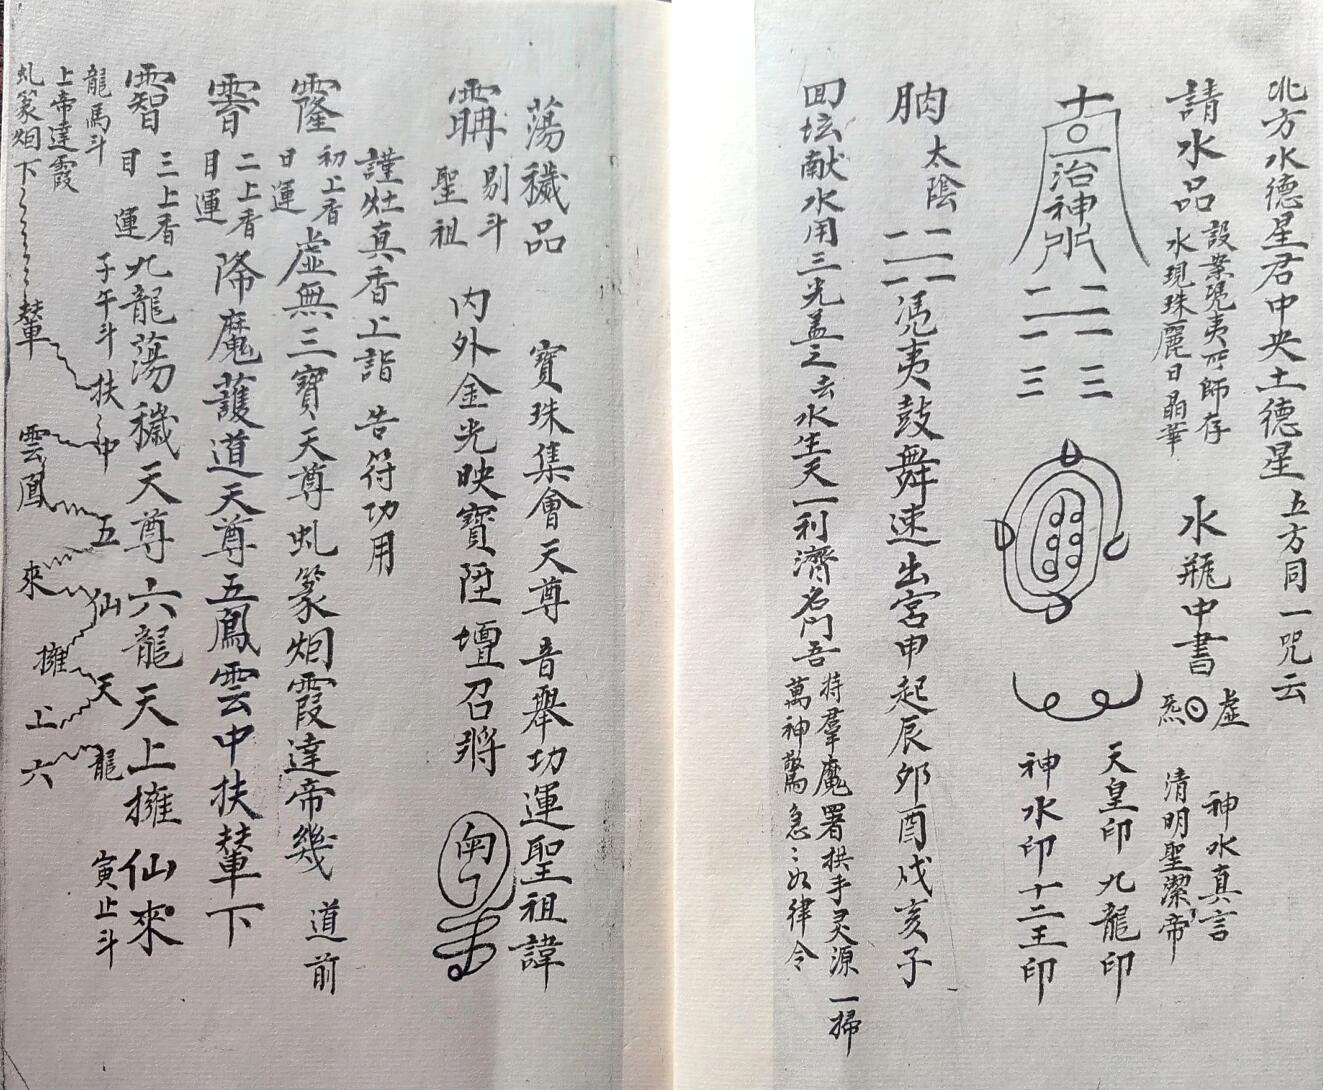 北方水德星君中央土德星 五方同一咒云
請水品 設案憑夷 師存
水現珠麗日晶華
水瓶中書 虛 炁
神水真言
清明聖潔帝
治神水
天皇印 九龍印
神水印 十二王印
太陰
憑夷鼓舞速出宮申起辰卯酉戌亥子
回坛献水用三光盖之云水生天一利濟名門吾
持羣魔署拱手灵源一掃
萬神驚急〻如律令
蕩穢品 寶珠集會天尊 音舉功運聖祖諱
剔斗
聖祖 內外金光映寶陞壇召將
謹灶真香上詣 告符功用
初上香
日運 虛無三寶天尊虬篆烟霞達帝幾 道前
二上香
目運 降魔護道天尊五鳳雲中扶輦下
三上香
目運 九龍蕩穢天尊六龍天上擁仙來
龍馬斗 子午斗 扶 中 五 仙 天 龍 寅止斗
上帝達霞
虬篆烟下 輦 雲鳳 來 擁 上 六